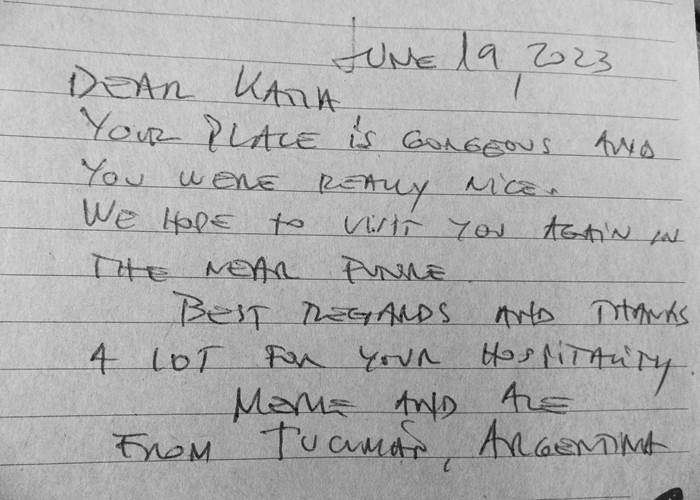 JUNE 19, 2023
DEAR KARA
YOUR PLACE is GORGEOUS AND
YOU WERE REALLY NICE.
WE HOPE to VISIT YOU AGAIN IN
THE NEAR
BEST REGARDS AND THANKS
A LOT FOR YOUR HOSPITALITY.
AND ALE
FROM TUCUMAN, ARGENTINA